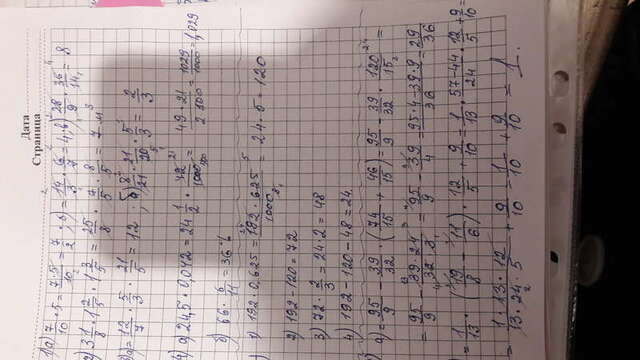 Дата
Страница
1 а) 7/10 · 5 = 7·5/10 = 7/2 ; б) = 14/3 · 6/7 = 4; в) 28/9 · 36/14 = 8
2) 3 1/8 · 1 2/5 · 1 3/5 = 25/8 · 7/5 · 8/5 = 7 м³
3) а) = 12/7 · 5/3 · 21/5 = 12 ; б) 8/21 · 21/20 · 5/3 = 2/3
4) а) 24,5 · 0,042 = 24 1/2 · 42/1000 = 49·21/2·500 = 1029/1000 = 1,029
б) 66 · 6/11 = 36
1) 192 · 0,625 = 192·625/1000 = 24·5 = 120
2) 192 – 120 = 72
3) 72 · 2/3 = 24·2 = 48
4) 192 – 120 – 48 = 24
а) = 95/9 – 39/32 · (74/15 + 46/15) = 95/9 – 39/32 · 120/15 =
= 95/9 – 39·24/32·3 = 95/9 – 39/4 = 95·4–39·9/36 = 29/36
= 1/13 · (19/8 – 11/6) · 12/5 + 9/10 = 1/13 · 57–44/24 · 12/5 + 9/10 =
= 1·13·12/13·24·5 + 9/10 = 1/10 + 9/10 = 1.